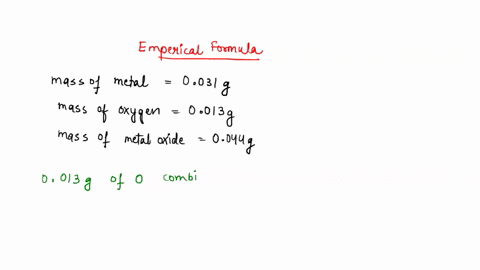 Emperical Formula
mass of metal = 0.031 g
mass of oxygen = 0.013 g
mass of metal oxide = 0.044 g
0.013 g of O combi